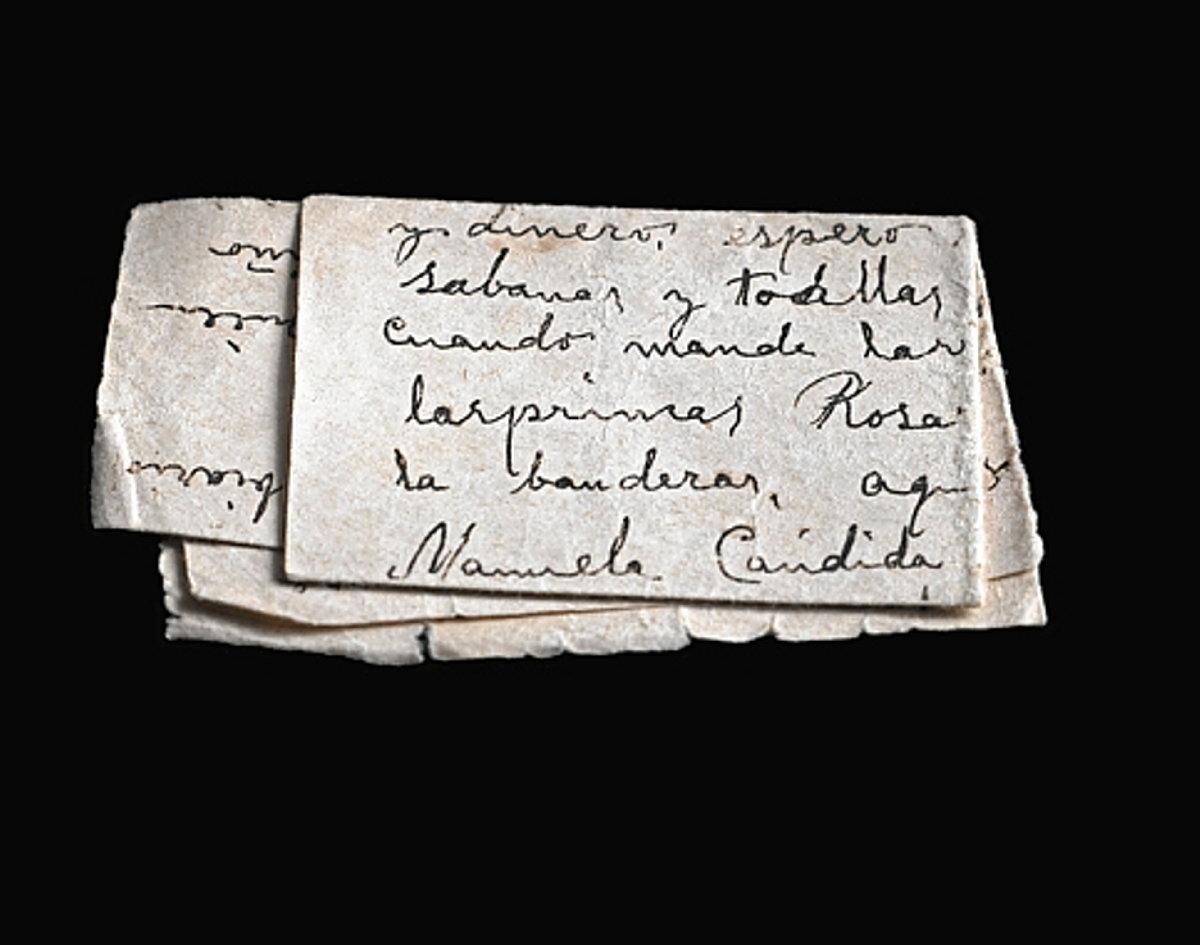 y dinero, espero
sabanas y todillas
cuando mande las
lasprimas Rosa
la banderas, aqu
Manuela Candida
ño
biario